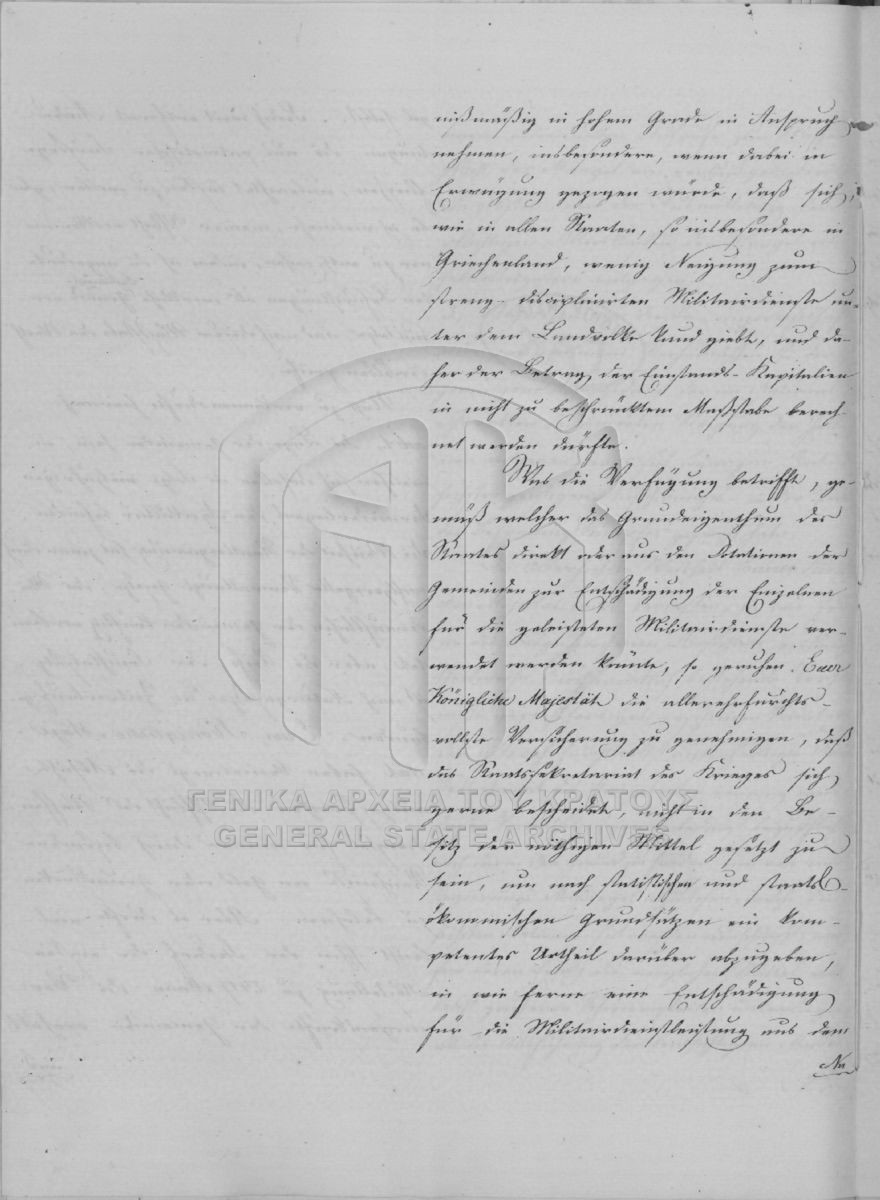 nißmäßig in hohem Grade in Anspruch
nehmen, insbesondere, wenn dabei in
Erwägung gezogen würde, daß sich,
wie in allen Staaten, so insbesondere in
Griechenland, wenig Neigung zum
streng-disciplinirten Militairdienste un-
ter dem Landvolke kund giebt, und da-
her der Betrag der Einstands-Kapitalien
in nicht zu beschränktem Maßstabe berech-
net werden dürfte.
Was die Verfügung betrifft, ge-
mäß welcher das Grundeigenthum des
Staates direkt oder aus den Dotationen der
Gemeinden zur Entschädigung der Einzelnen
für die geleisteten Militairdienste ver-
wendet werden könnte, so geruhen Euer
Königliche Majestät die allerehrfurchts-
vollste Versicherung zu genehmigen, daß
das Staatssekretariat des Krieges sich
gerne bescheidet, nicht in den Be-
sitz der nöthigen Mittel gesetzt zu
sein, um nach statistischen und staats-
ökonomischen Grundsätzen ein kom-
petentes Urtheil darüber abzugeben,
in wie ferne eine Entschädigung
für die Militairdienstleistung aus dem
ΓΕΝΙΚΑ ΑΡΧΕΙΑ ΤΟΥ ΚΡΑΤΟΥΣ
GENERAL STATE ARCHIVES